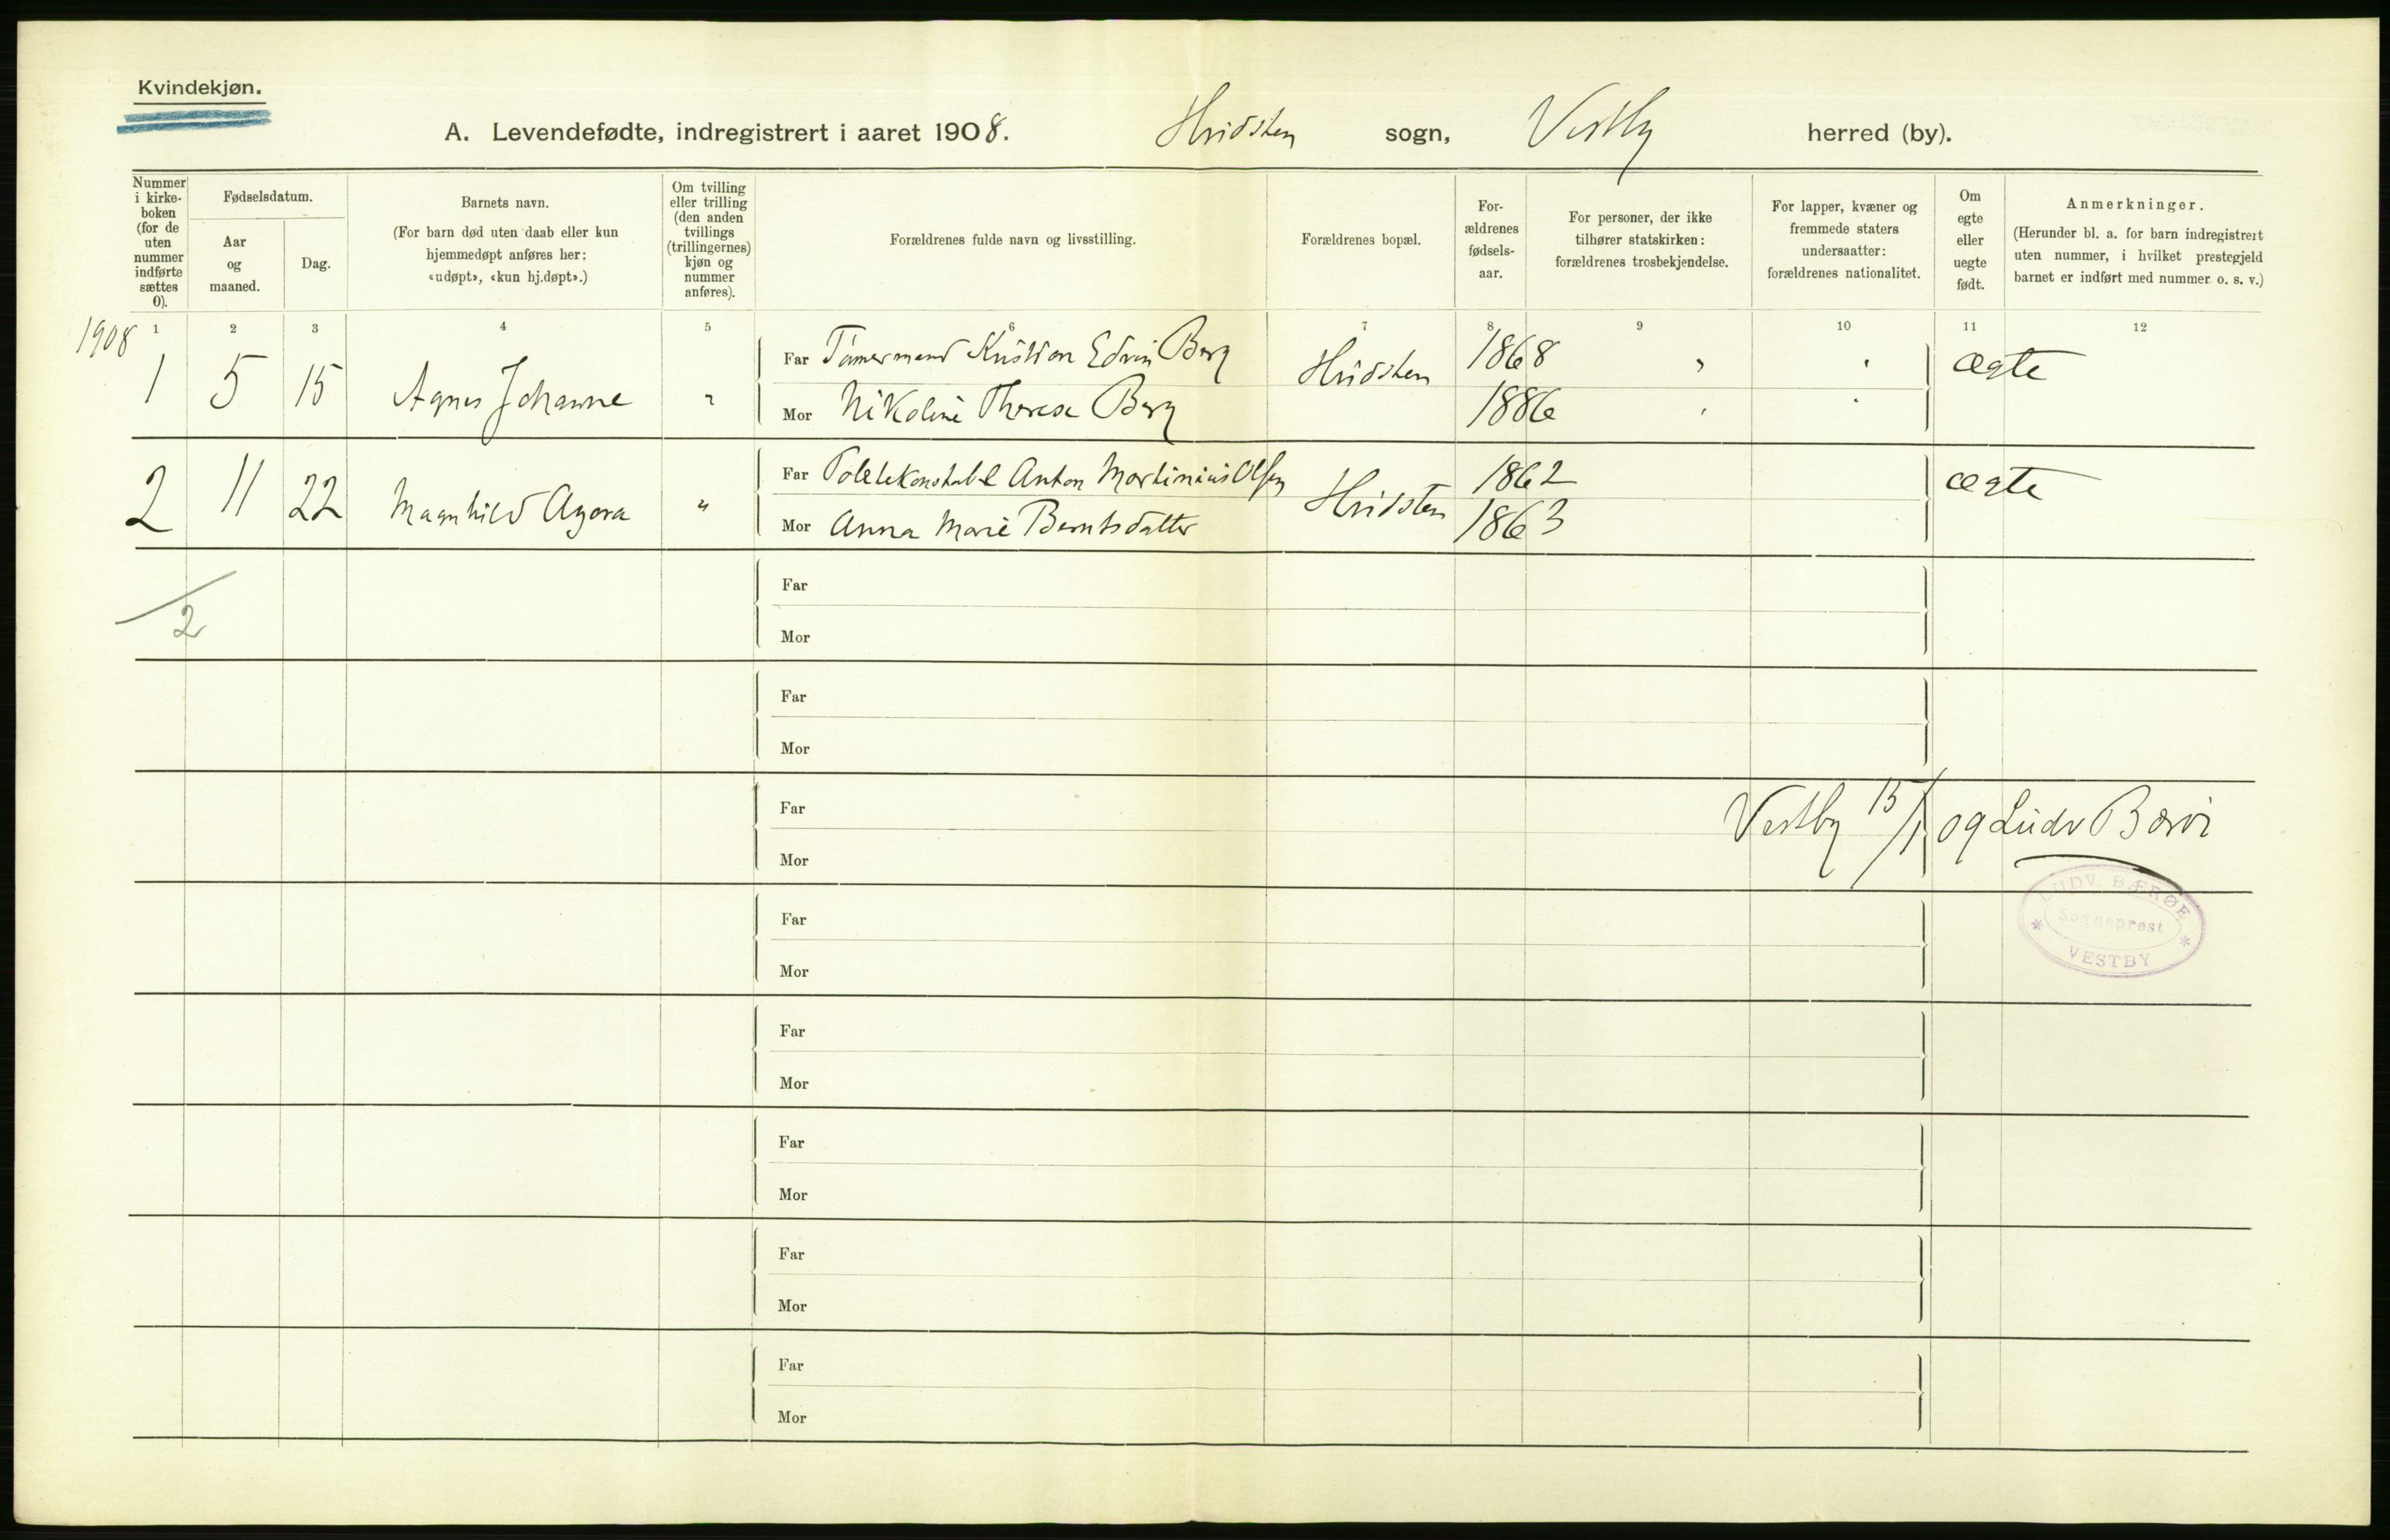 Kvindekjøn.
A. Levendefødte, indregistrert i aaret 1908. Hvidsten sogn, Vestby herred (by).
Nummer i kirke-boken (for de uten nummer indførte sættes 0).
Fødselsdatum.
Aar og maaned.
Dag.
Barnets navn.
(For barn død uten daab eller kun hjemmedøpt anføres her; «udøpt», «kun hj.døpt».)
Om tvilling eller trilling (den anden tvillings (trillingernes) kjøn og nummer anføres).
Forældrenes fulde navn og livsstilling.
Forældrenes bopæl.
For-ældrenes fødsels-aar.
For personer, der ikke tilhører statskirken: forældrenes trosbekjendelse.
For lapper, kvæner og fremmede staters undersaatter: forældrenes nationalitet.
Om egte eller uegte født.
Anmerkninger.
(Herunder bl. a. for barn indregistrert uten nummer, i hvilket prestegjeld barnet er indført med nummer o. s. v.)
1 2 3 4 5 6 7 8 9 10 11 12
1908
1 5 15 Agnes Johanne "
Far Tømermand Kristian Edvin Berg Hvidsten 1868 " " ægte
Mor Nikoline Therese Berg 1886 " "
2 11 22 Magnhild Agora "
Far Politikonstabel Anton Martinius Olsen Hvidsten 1862 ægte
Mor Anna Marie Berntsdatter 1863
2
Far
Mor
Far
Mor
Far
Mor
Vestby 15/1 09 Ludv Bærøe
LUDV. BÆRØE
Sogneprest
VESTBY
Far
Mor
Far
Mor
Far
Mor
Far
Mor
Far
Mor